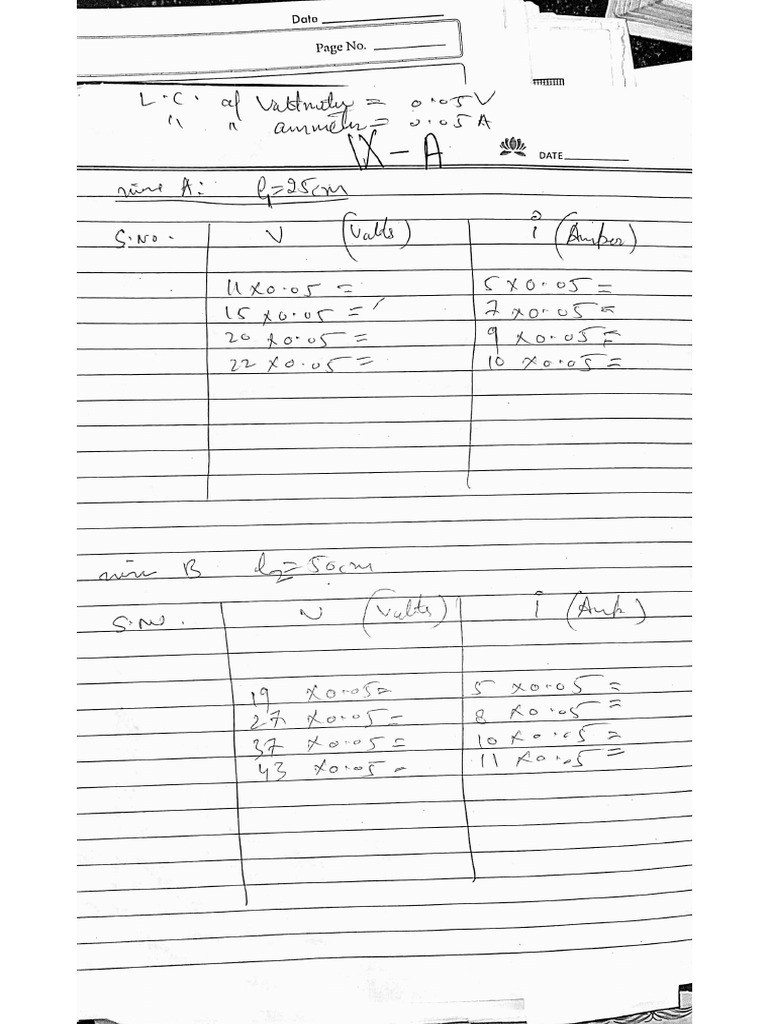 Date
Page No.
L.C. of Voltmeter = 0.05V
" " ammeter = 0.05A
IX-A
DATE
wire A: l₁=25cm
S.No. V (Volts) i (Amper)
11x0.05 = 5x0.05 =
15x0.05 = 7x0.05 =
20x0.05 = 9x0.05 =
22x0.05 = 10x0.05 =
wire B l₂=50cm
S.No. V (Volts) i (Amp)
19 x0.05= 5 x0.05 =
27 x0.05= 8 x0.05 =
37 x0.05= 10x0.05 =
43 x0.05= 11x0.05 =